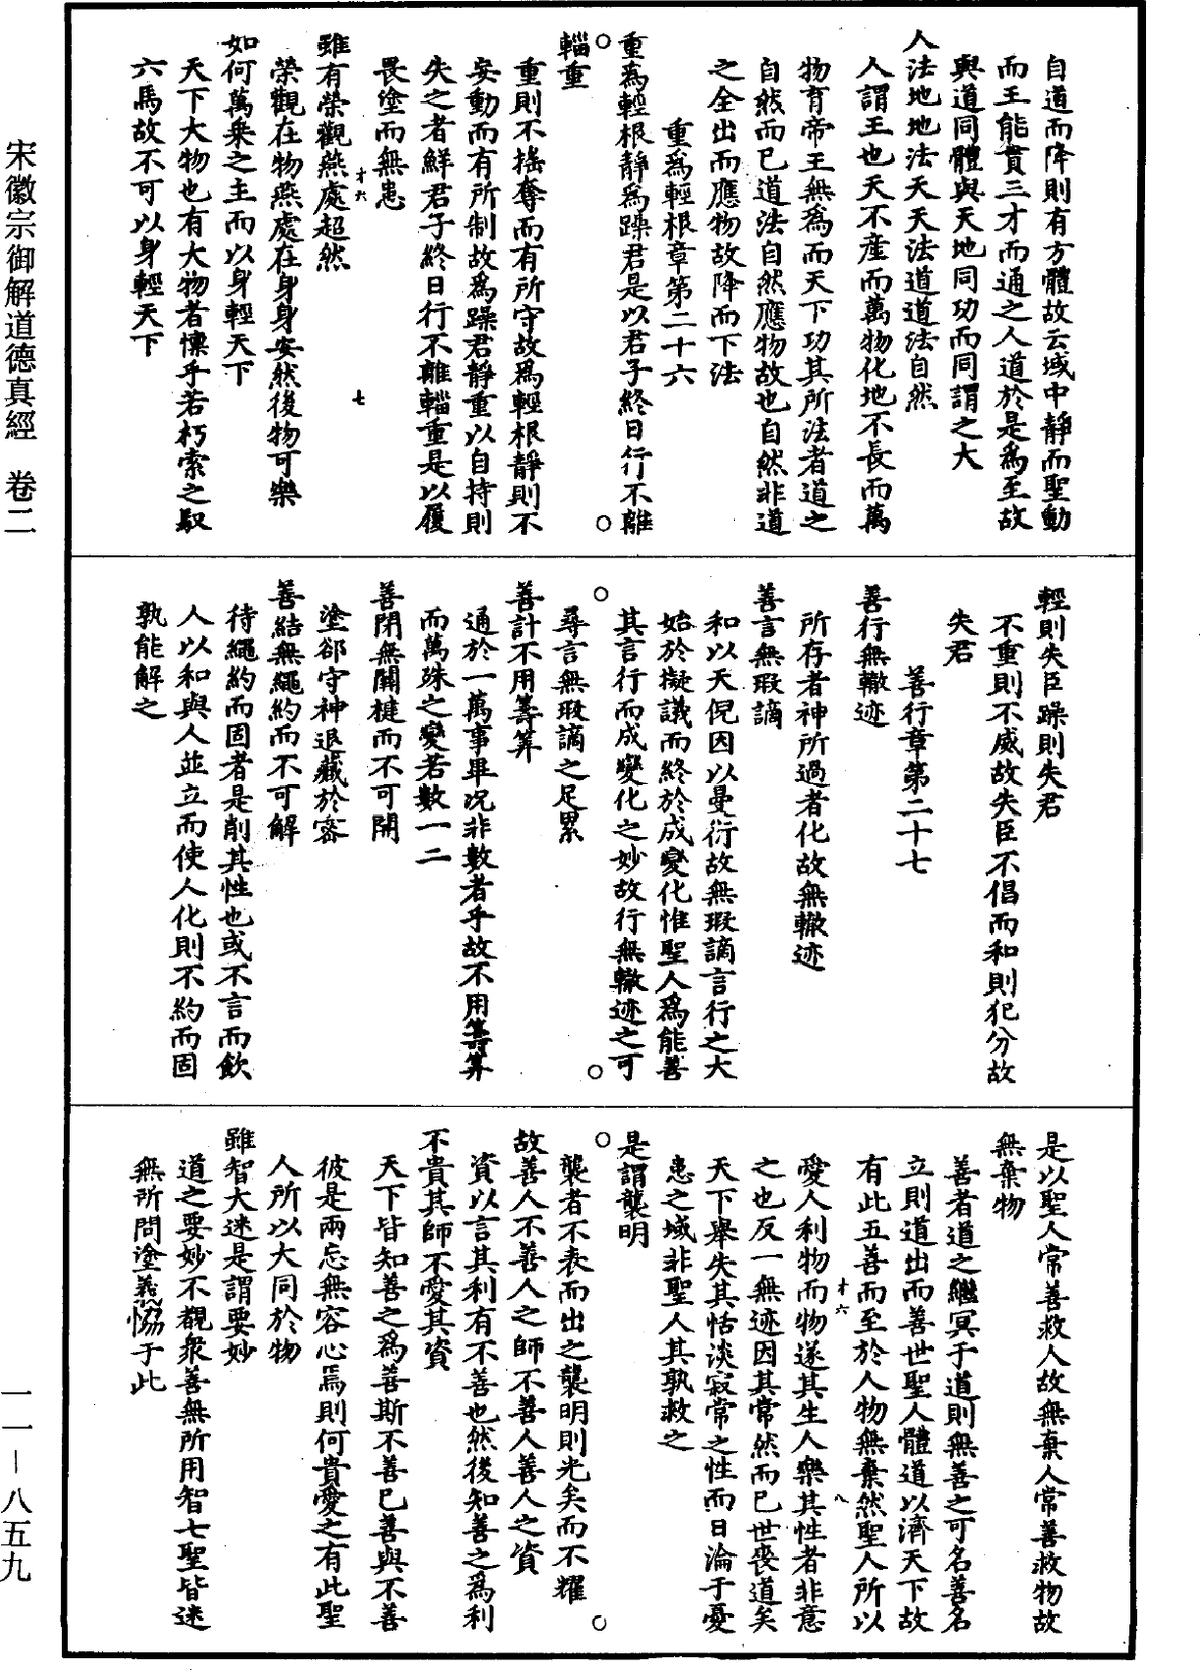 自道而降則有方體故云域中靜而聖動
而王能貫三才而通之人道於是爲至故
與道同體與天地同功而同謂之大
人法地地法天天法道道法自然
人謂王也天不產而萬物化地不長而萬
物育帝王無爲而天下功其所法者道之
自然而已道法自然應物故也自然非道
之全出而應物故降而下法
重爲輕根章第二十六
重爲輕根靜爲躁君是以君子終日行不離
輜重
重則不搖奪而有所守故爲輕根靜則不
妄動而有所制故爲躁君靜重以自持則
失之者鮮君子終日行不離輜重是以履
畏塗而無患
才六
七
雖有榮觀燕處超然
榮觀在物燕處在身身安然後物可樂
如何萬乘之主而以身輕天下
天下大物也有大物者懍乎若朽索之馭
六馬故不可以身輕天下
輕則失臣躁則失君
不重則不威故失臣不倡而和則犯分故
失君
善行章第二十七
善行無轍迹
所存者神所過者化故無轍迹
善言無瑕謫
和以天倪因以曼衍故無瑕謫言行之大
始於擬議而終於成變化惟聖人爲能善
其言行而成變化之妙故行無轍迹之可
尋言無瑕謫之足累
善計不用籌筭
通於一萬事畢况非數者乎故不用籌筭
而萬殊之變若數一二
善閉無關楗而不可開
塗郤守神退藏於密
善結無繩約而不可解
待繩約而固者是削其性也或不言而飲
人以和與人並立而使人化則不約而固
孰能解之
是以聖人常善救人故無棄人常善救物故
無棄物
善者道之繼冥于道則無善之可名善名
立則道出而善世聖人體道以濟天下故
有此五善而至於人物無棄然聖人所以
才六
八
愛人利物而物遂其生人樂其性者非意
之也反一無迹因其常然而已世喪道矣
天下舉失其恬淡寂常之性而日淪于憂
患之域非聖人其孰救之
是謂襲明
襲者不表而出之襲明則光矣而不耀
故善人不善人之師不善人善人之資
資以言其利有不善也然後知善之爲利
不貴其師不愛其資
天下皆知善之爲善斯不善已善與不善
彼是兩忘無容心焉則何貴愛之有此聖
人所以大同於物
雖智大迷是謂要妙
道之要妙不覩衆善無所用智七聖皆迷
無所問塗義恊于此
宋徽宗御解道德真經　卷二
一一—八五九